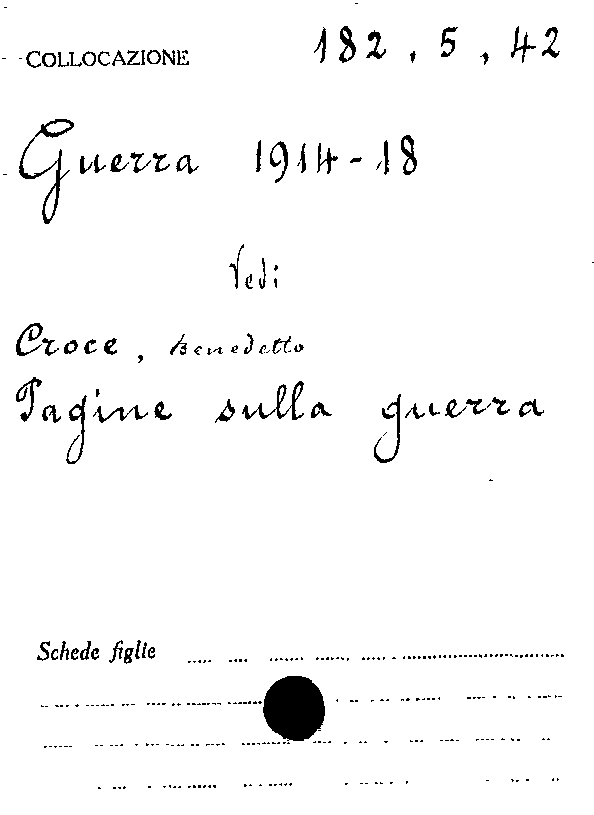 COLLOCAZIONE 182, 5, 42
Guerra 1914-18
Vedi
Croce, Benedetto
Pagine sulla guerra
Schede figlie